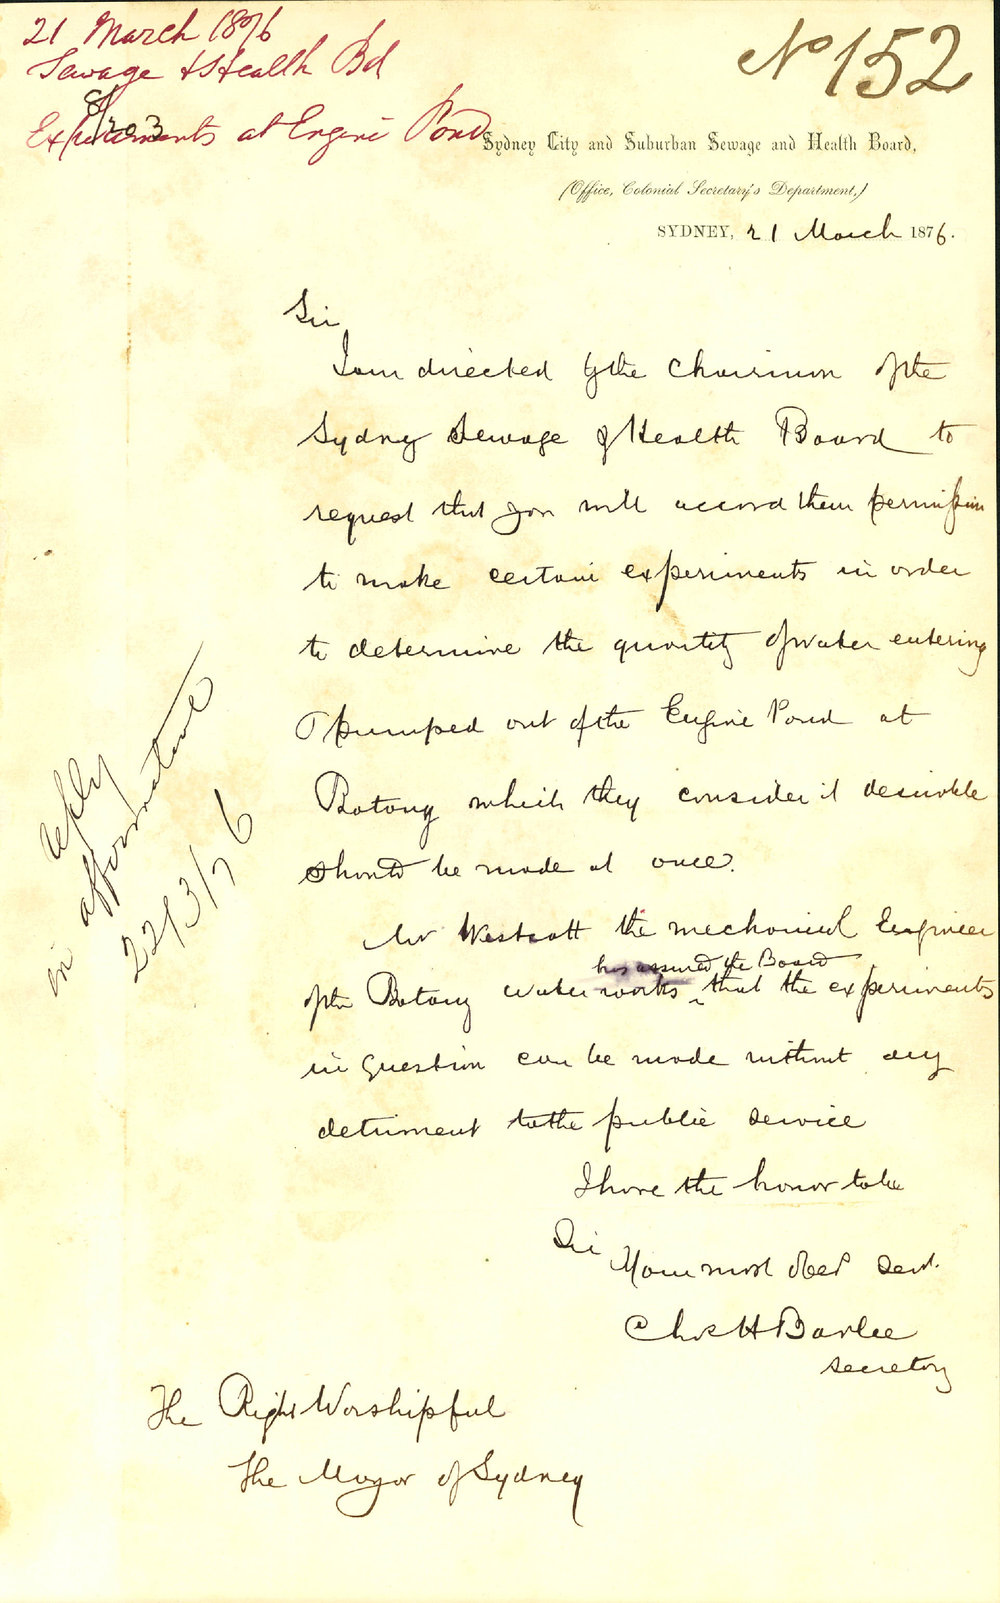 21 March 1876
Sewage & Health Bd
Experiments at Engine Pond
8/203
No 152
Sydney City and Suburban Sewage and Health Board,
(Office, Colonial Secretary's Department,)
SYDNEY, 21 March 1876.
Sir
I am directed by the Chairman of the
Sydney Sewage & Health Board to
request that you will accord them permission
to make certain experiments in order
to determine the quantity of water entering
& pumped out of the Engine Pond at
Botany which they consider it desirable
should be made at once.
Mr Westcott the mechanical Engineer
has assured the Board
of the Botany water works ‸ that the experiments
in question can be made without any
detriment to the public service
I have the honor to be
Sir
Your most obed servt.
Chas H Barlee
Secretary
The Right Worshipful
The Mayor of Sydney
reply
in affirmative
22/3/76